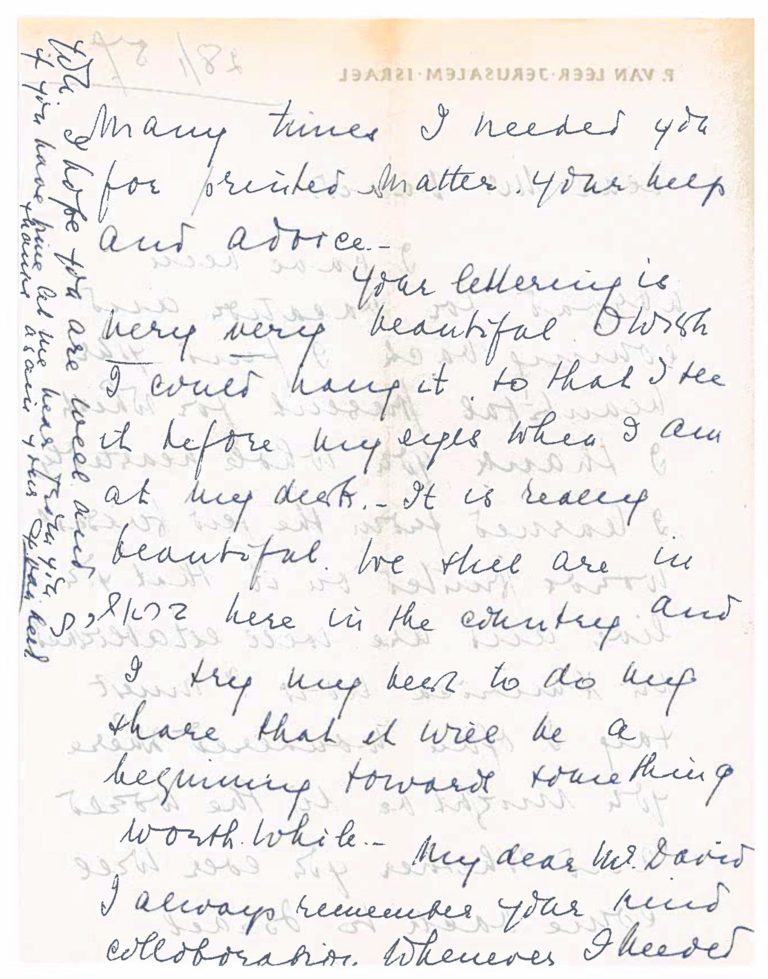 P. VAN LEER · JERUSALEM · ISRAEL
Many times I needed you
for printed matter. your help
and advice.-
your lettering is
very very beautiful I wish
I could hang it so that I see
it before my eyes when I am
at my desk.- It is really
beautiful. We still are in
here in the country and
I try my best to do my
share that it will be a
beginning towards something
worth while.- My dear Mr. David
I always remember your kind
colloboration. Whenever I needed
you I hope you are well and
if you have time let me hear from you
thanks again yours P van Leer